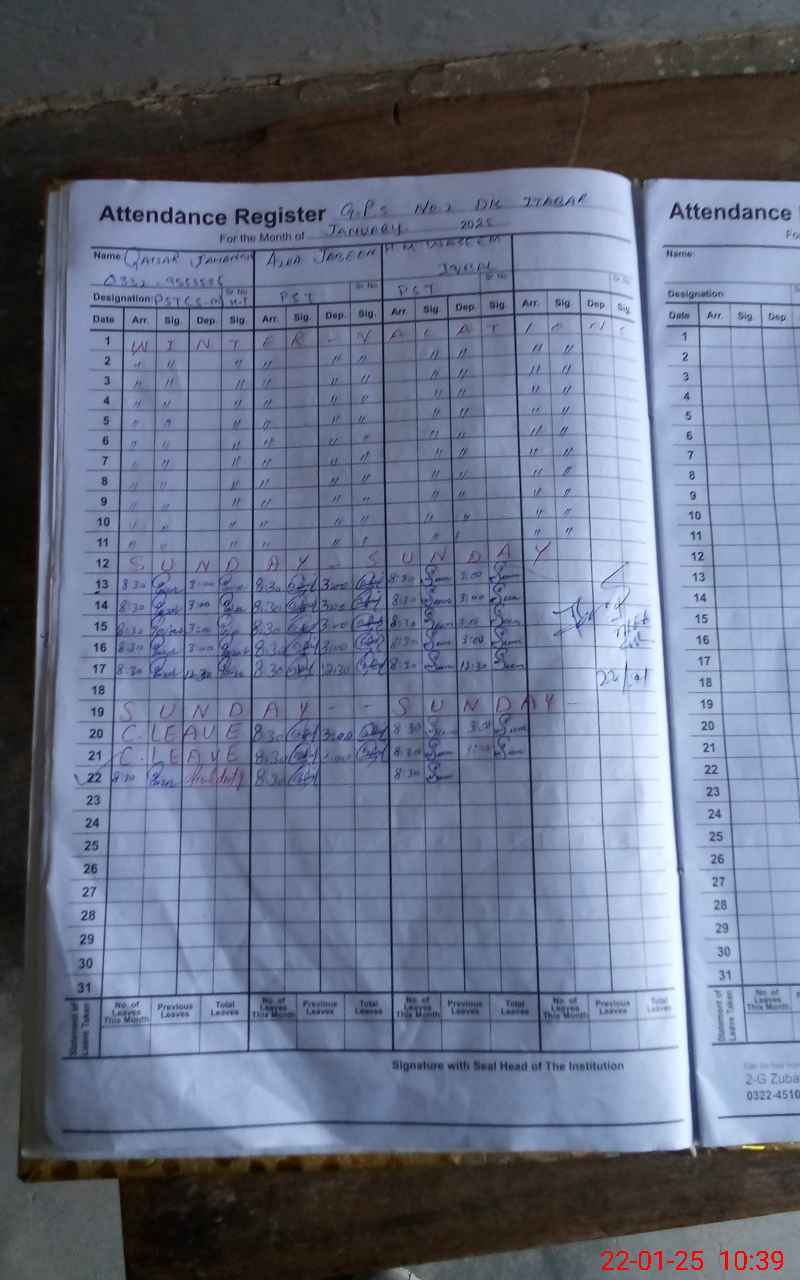 Attendance Register G.P.S No.2 DK ITABAR
For the Month of JANUARY 2025
Name: QAISAR JAHANGIR AZRA JABEEN H M WASEEM
0332 IQBAL
Sr No Sr No Sr No Sr No
Designation: PST PST PST
Date Arr. Sig. Dep. Sig. Arr. Sig. Dep. Sig. Arr. Sig. Dep. Sig. Arr. Sig. Dep. Sig.
1 W I N T E R - V A C A T I O N S
2 " " " " " " " " " "
3 " " " " " " " " " "
4 " " " " " " " " " "
5 " " " " " " " " " "
6 " " " " " " " " " "
7 " " " " " " " " " "
8 " " " " " " " " " "
9 " " " " " " " " " "
10 " " " " " " " " " "
11 " " " " " " " "
12 S U N D A Y - S U N D A Y
13 8:30 3:00 8:30 3:00 8:30 3:00
14 8:30 3:00 8:30 3:00 8:30 3:00
15 8:30 3:00 8:30 3:00 8:30 3:00
16 8:30 3:00 8:30 3:00 8:30 3:00
17 8:30 12:30 8:30 12:30 8:30 12:30
22/01
18
19 S U N D A Y - - S U N D A Y -
20 C. LEAVE 8:30 3:00 8:30 3:00
21 C. LEAVE 8:30 3:00 8:30 3:00
22 8:30 8:30 8:30
23
24
25
26
27
28
29
30
31
Statement of Leave Taken No. of Leaves This Month Previous Leaves Total Leaves No. of Leaves This Month Previous Leaves Total Leaves No. of Leaves This Month Previous Leaves Total Leaves No. of Leaves This Month Previous Leaves Total Leaves
Signature with Seal Head of The Institution
Attendance
Name:
Designation:
Date Arr. Sig. Dep.
1
2
3
4
5
6
7
8
9
10
11
12
13
14
15
16
17
18
19
20
21
22
23
24
25
26
27
28
29
30
31
Statement of Leave Taken No. of Leaves This Month
2-G Zuba
0322-4510
22-01-25 10:39